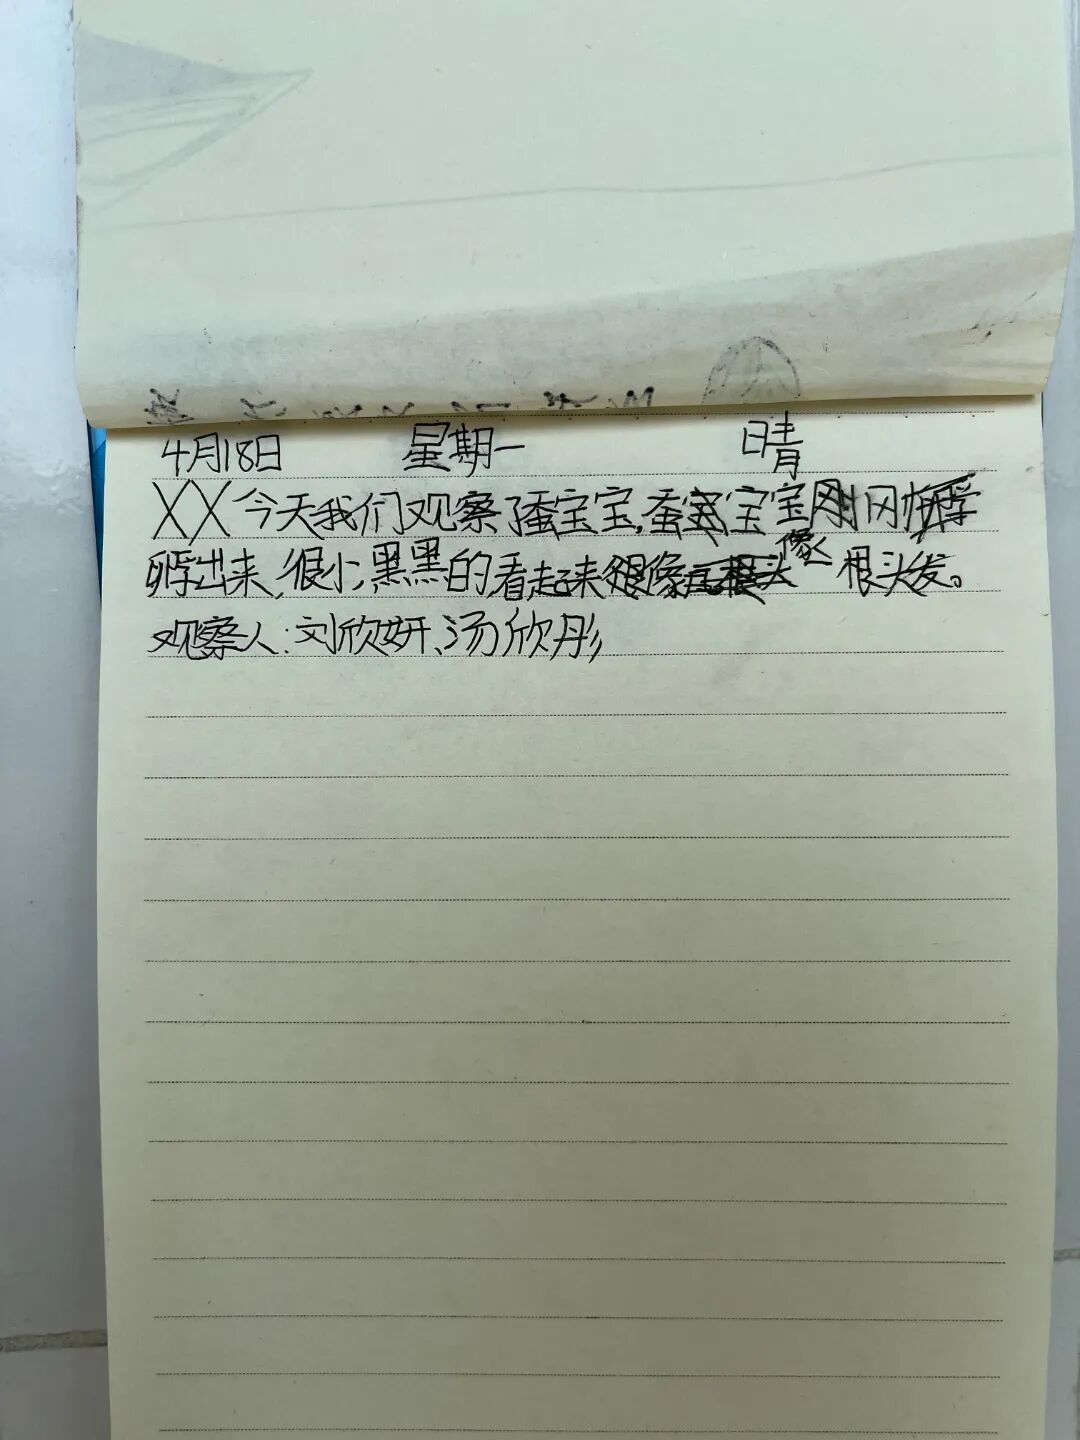 4月18日 星期一 晴
XX今天我们观察了蚕宝宝,蚕宝宝宝刚冈
孵出来,很小,黑黑的,看起来很像 像 根头发。
观察人:刘欣妍、汤欣彤